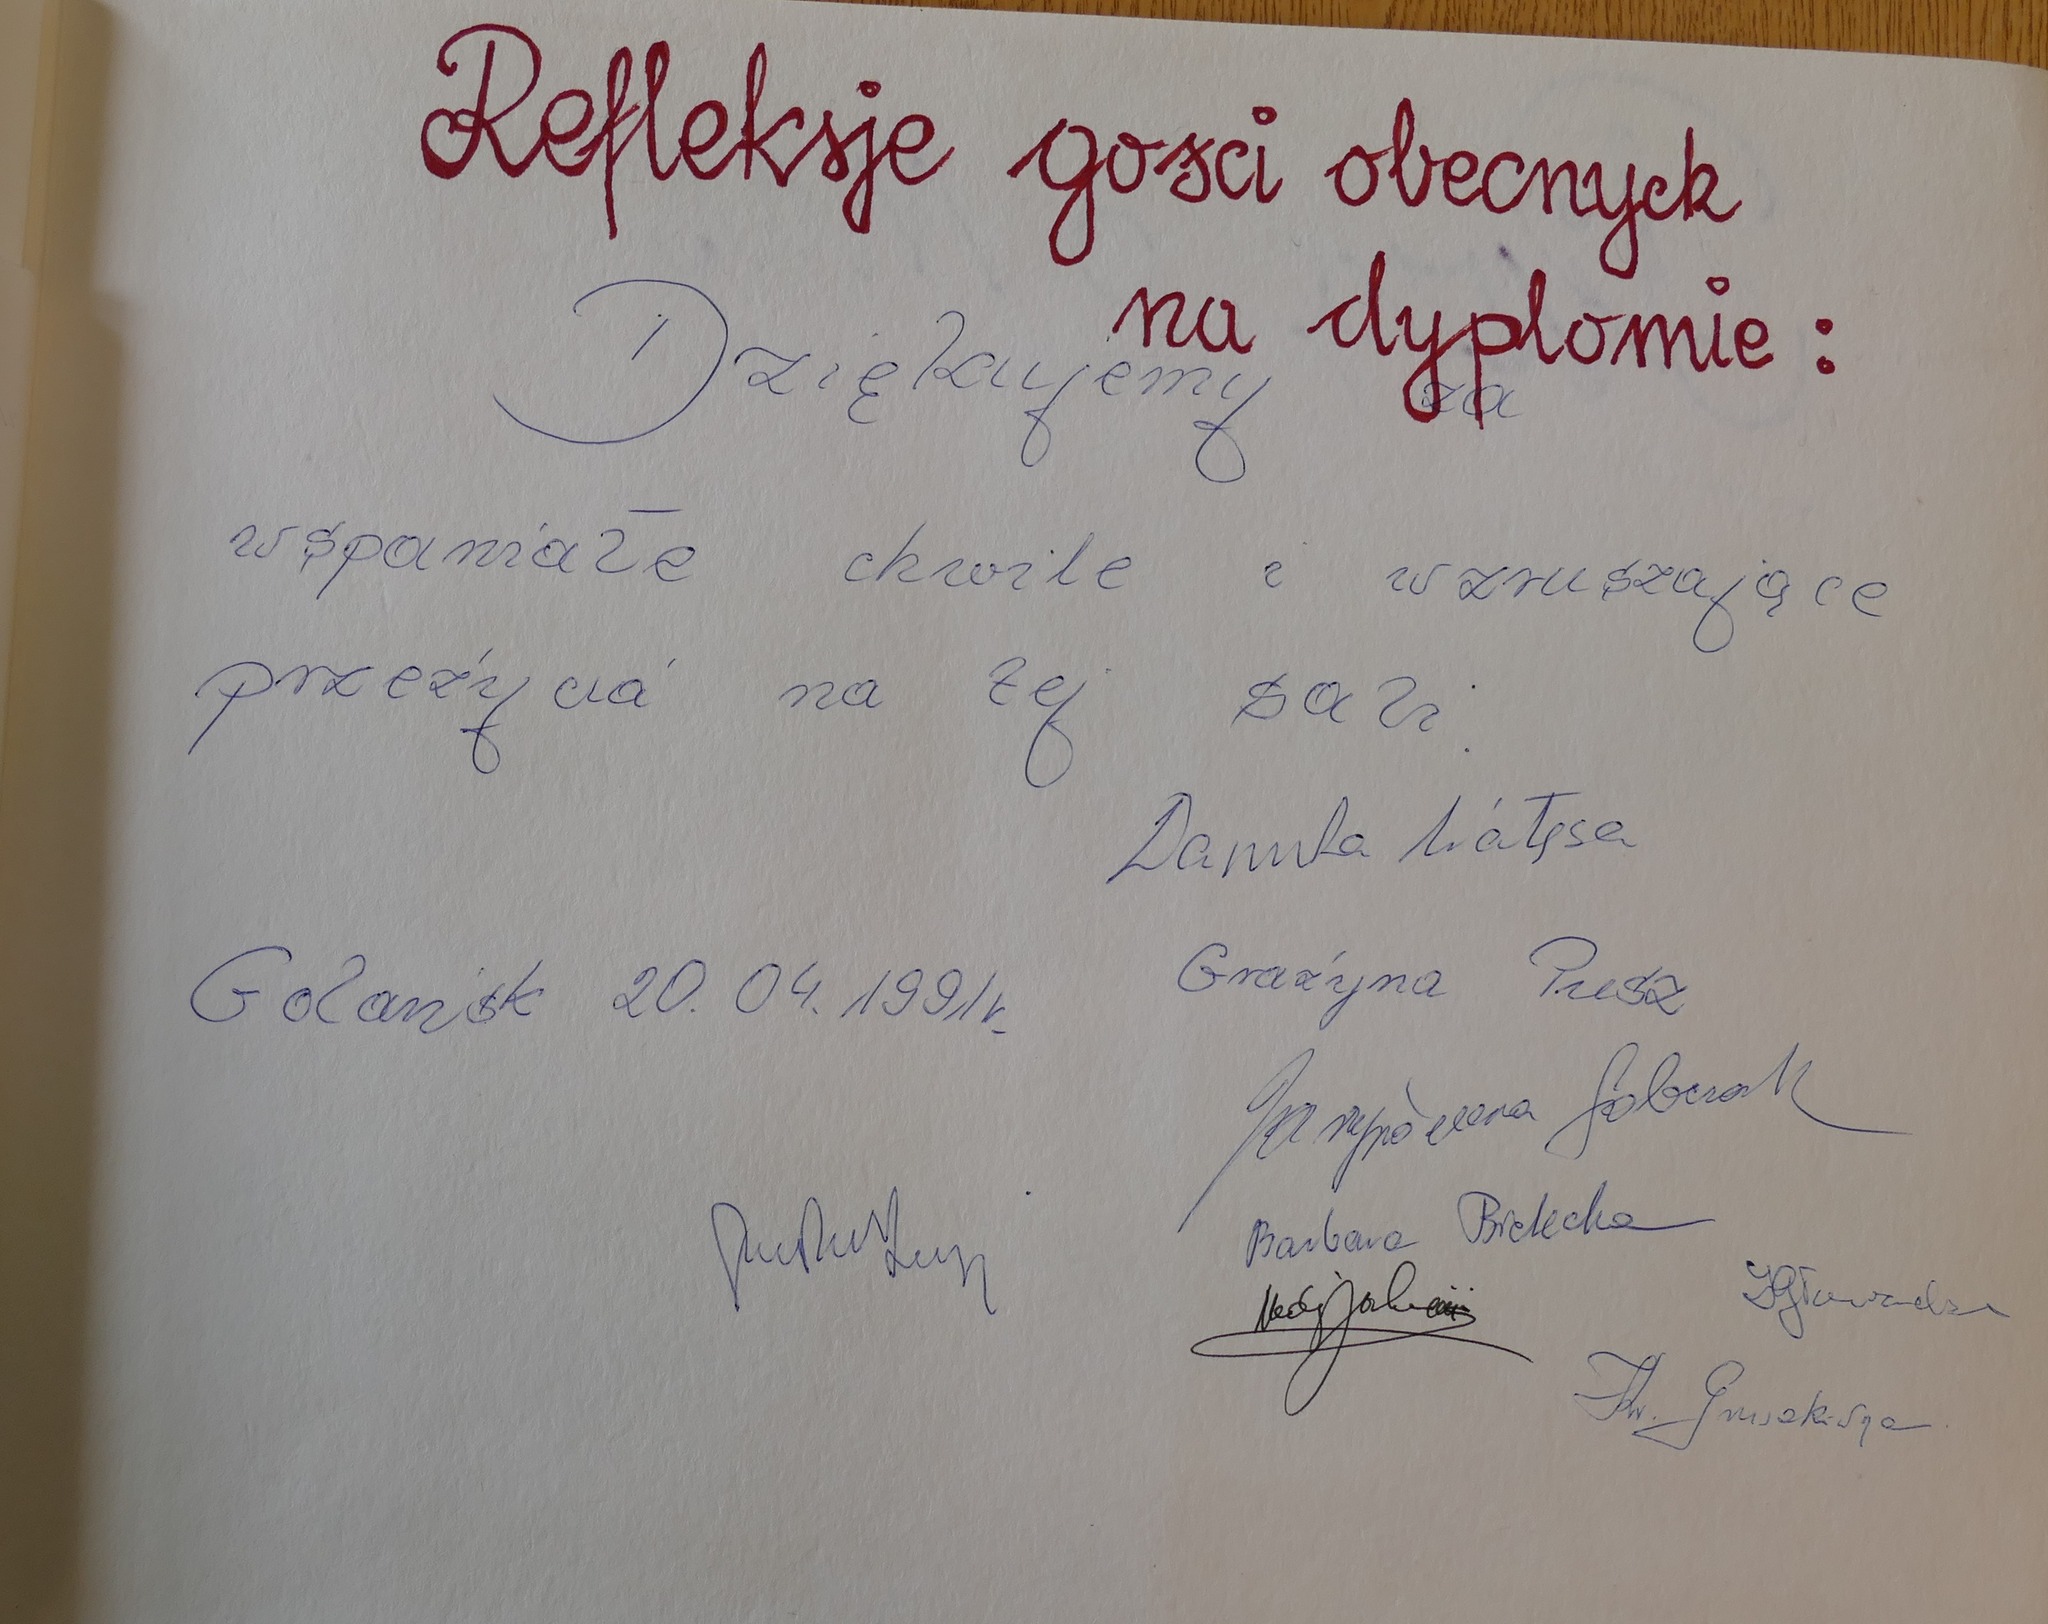 Refleksje gości obecnych
na dyplomie:
Dziękujemy za
wspaniałe chwile i wzruszające
przeżycia na tej sali.
Danuta Wałęsa
Gdańsk 20.04.1991r.
Grażyna Pusz
Barbara Bielecka